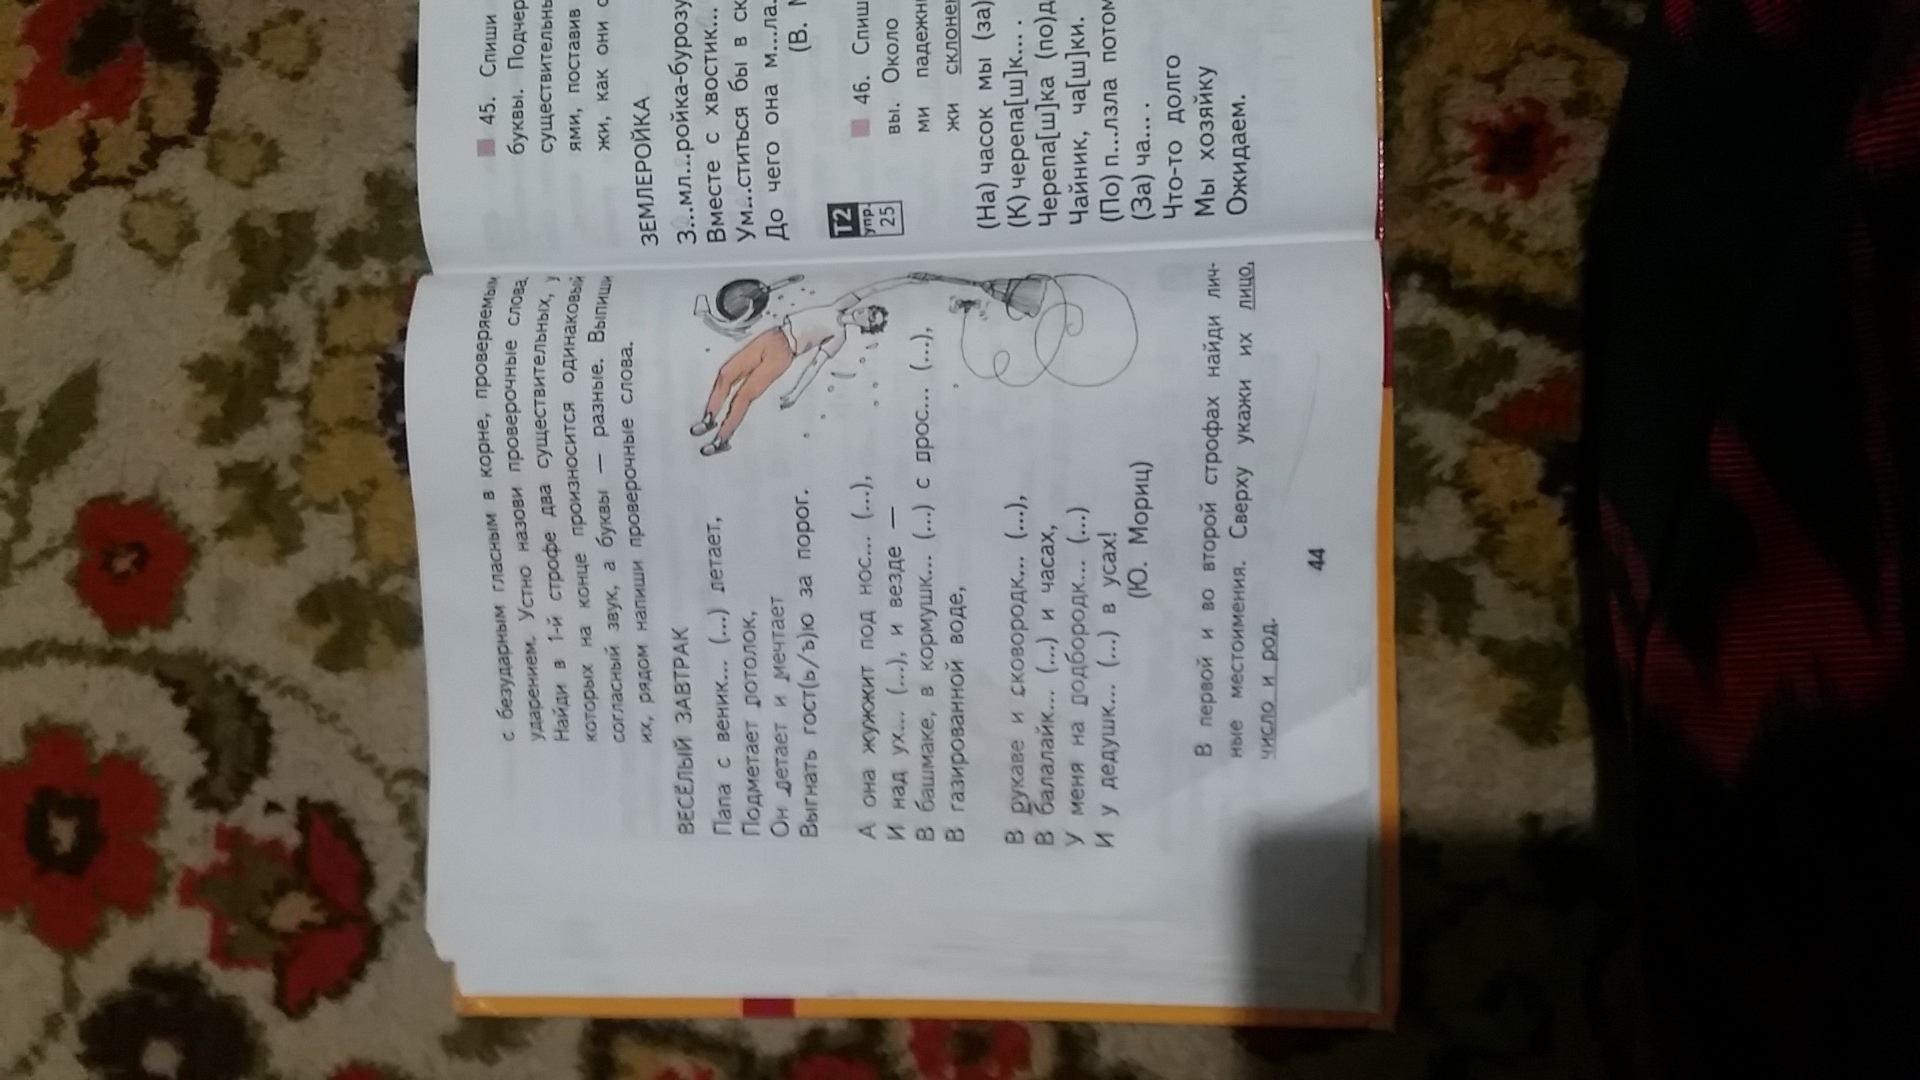 с безударным гласным в корне, проверяемым
ударением. Устно назови проверочные слова.
Найди в 1-й строфе два существительных, у
которых на конце произносится одинаковый
согласный звук, а буквы — разные. Выпиши
их, рядом напиши проверочные слова.
ВЕСЁЛЫЙ ЗАВТРАК
Папа с веник... (...) летает,
Подметает потолок,
Он летает и мечтает
Выгнать гост(ь/ъ)ю за порог.
А она жужжит под нос... (...),
И над ух... (...), и везде —
В башмаке, в кормушк... (...) с дрос... (...),
В газированной воде,
В рукаве и сковородк... (...),
В балалайк... (...) и часах,
У меня на подбородк... (...)
И у дедушк... (...) в усах!
(Ю. Мориц)
В первой и во второй строфах найди лич-
ные местоимения. Сверху укажи их лицо,
число и род.
44
45. Спиши
буквы. Подчер
существительны
ями, поставив
жи, как они с
ЗЕМЛЕРОЙКА
З...мл...ройка-бурозу
Вместе с хвостик...
Ум...ститься бы в ск
До чего она м...ла.
(В.
Т2
упр.
25
46. Спиш
вы. Около
ми падежн
жи склонен
(На) часок мы (за)
(К) черепа[ш]к... .
Черепа[ш]ка (по)д
Чайник, ча[ш]ки.
(По) п...лзла потом
(За) ча... .
Что-то долго
Мы хозяйку
Ожидаем.